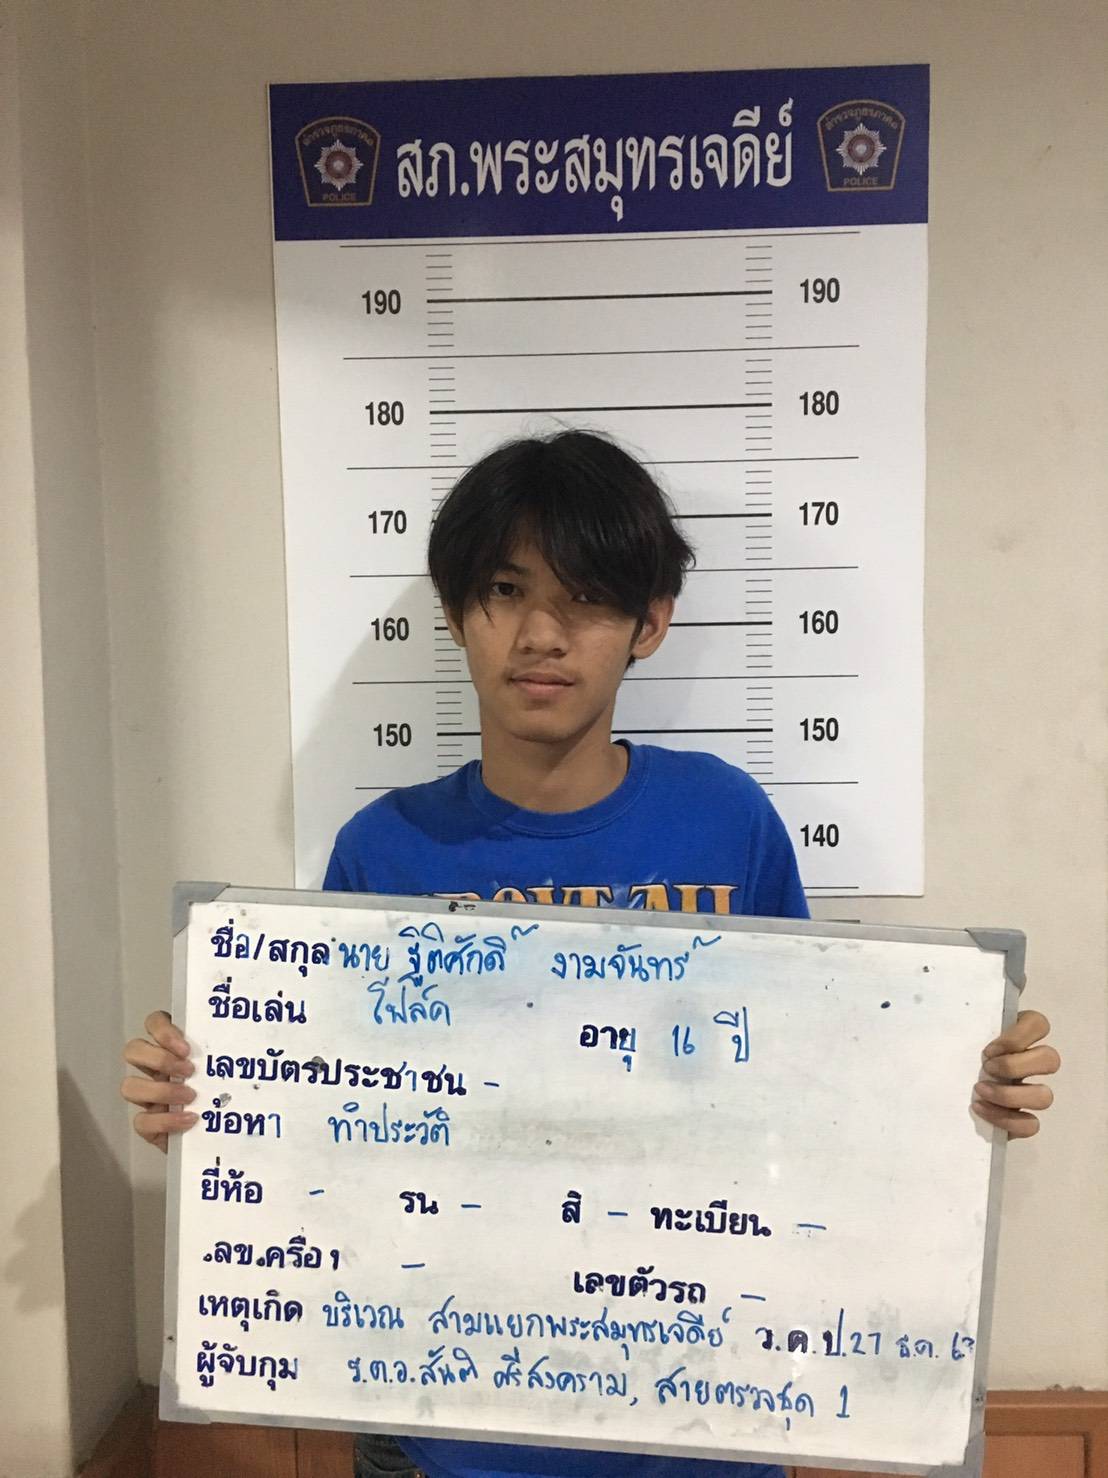 สภ.พระสมุทรเจดีย์
POLICE
POLICE
190 190
180 180
170 170
160 160
150 150
140
ชื่อ/สกุล นาย ฐิติศักดิ์ งามจันทร์
ชื่อเล่น โฟล์ค อายุ 16 ปี
เลขบัตรประชาชน -
ข้อหา ทำประวัติ
ยี่ห้อ - รน - สี - ทะเบียน -
ลข ครื่อง -
เลขตัวรถ -
เหตุเกิด บริเวณ สามแยกพระสมุทรเจดีย์ ว.ด.ป.27 ธ.ค. 63
ผู้จับกุม ร.ต.อ.สันติ ศรีสงคราม, สายตรวจชุด 1